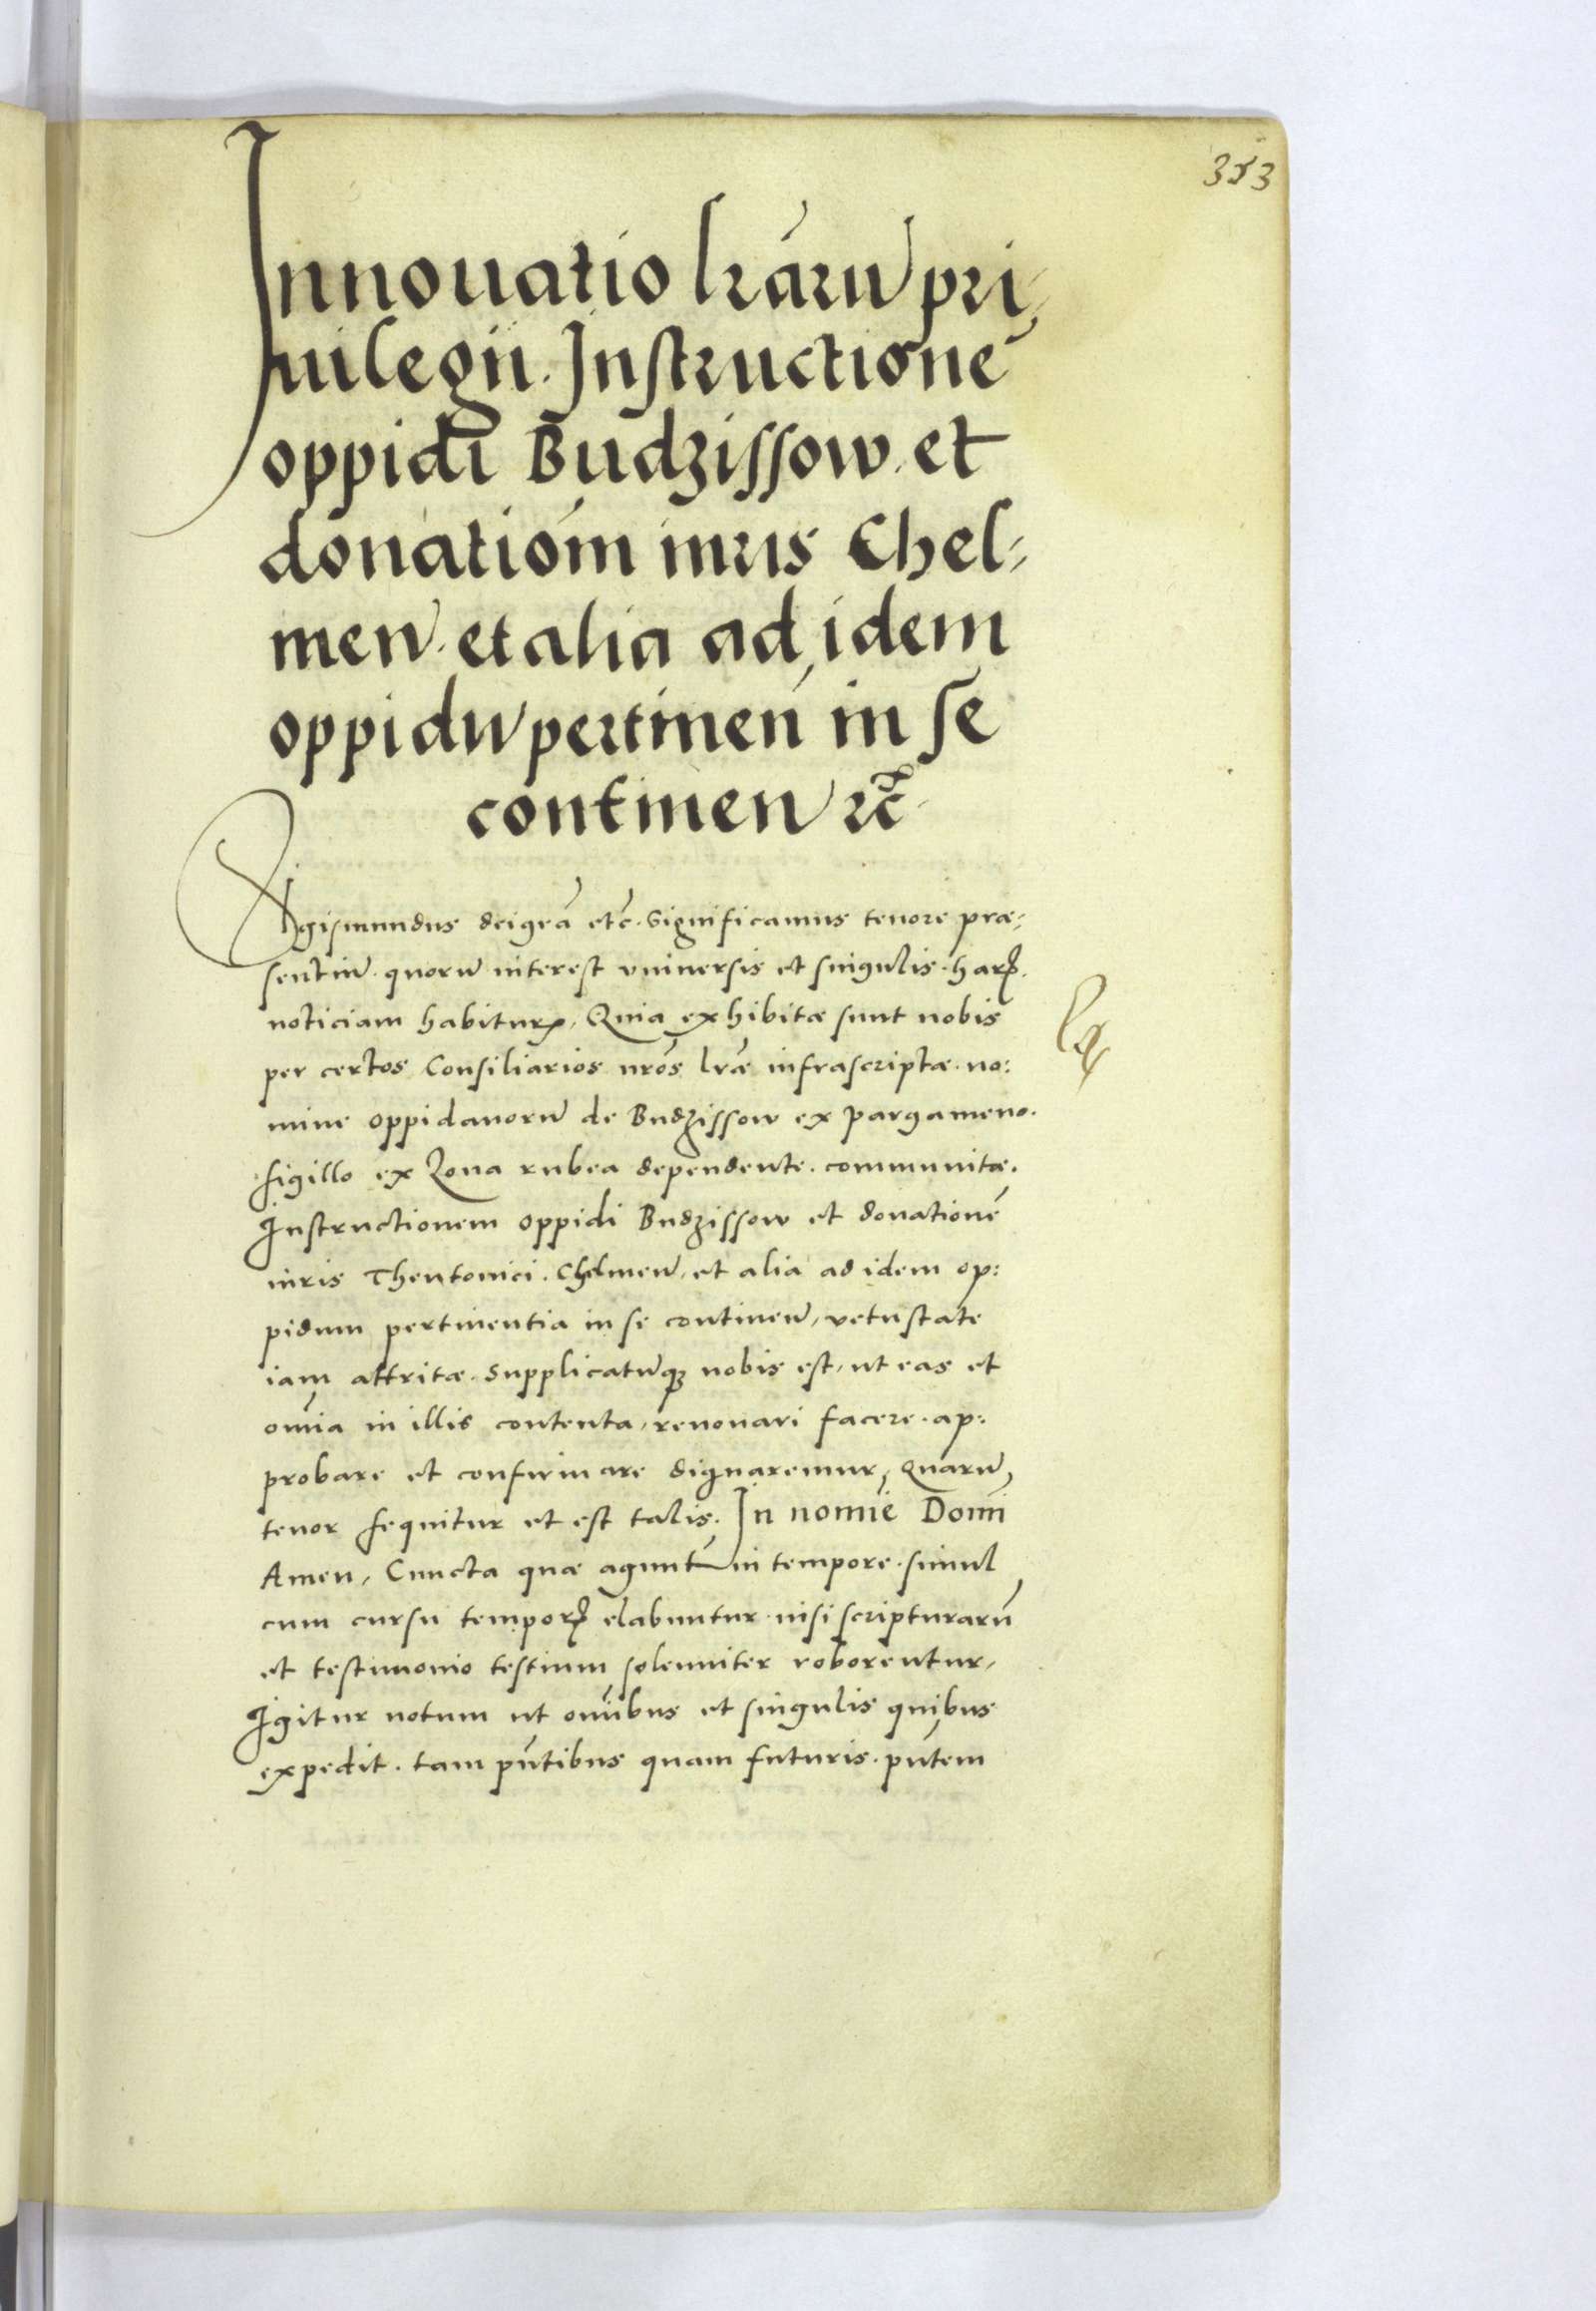 353
Innouatio lrarũ pri,
uilegii. Instructionẽ
oppidi Budzissow. et
donatiom iuris Chel:
men. et alia ad idem
oppidũ pertinen in se
continen rc̃.
Sigismundus dei grã etc̃. Significamus tenore præ:
sentiũ. quorũ interest vniuersis et singulis. harꝝ.
noticiam habiturꝭ, Quia exhibitæ sunt nobis
per certos Consiliarios nrõs lræ infrascriptæ. no:
mine oppidanorũ de Budzissow ex pargameno.
sigillo ex Zona rubea dependente. communitæ.
Instructionem oppidi Budzissow et donationẽ
iuris Theutonici. Chelmen, et alia ad idem op:
pidum pertinentia in se continen, vetustate
iam attritæ. Supplicatũqȝ nobis est, ut eas et
omĩa in illis contenta, renouari facere. ap:
probare et confirmare dignaremur, Quarũ
tenor sequitur et est talis. In nomie Domi
Amen, Cuncta quæ agunt᷑ in tempore. simul
cum cursu temporꝝ elabuntur. nisi scripturarũ
et testimonio testium solenniter roborentur,
Igitur notum ut omĩbus et singulis quibus
expedit. tam pñtibus quam futuris. pñtem